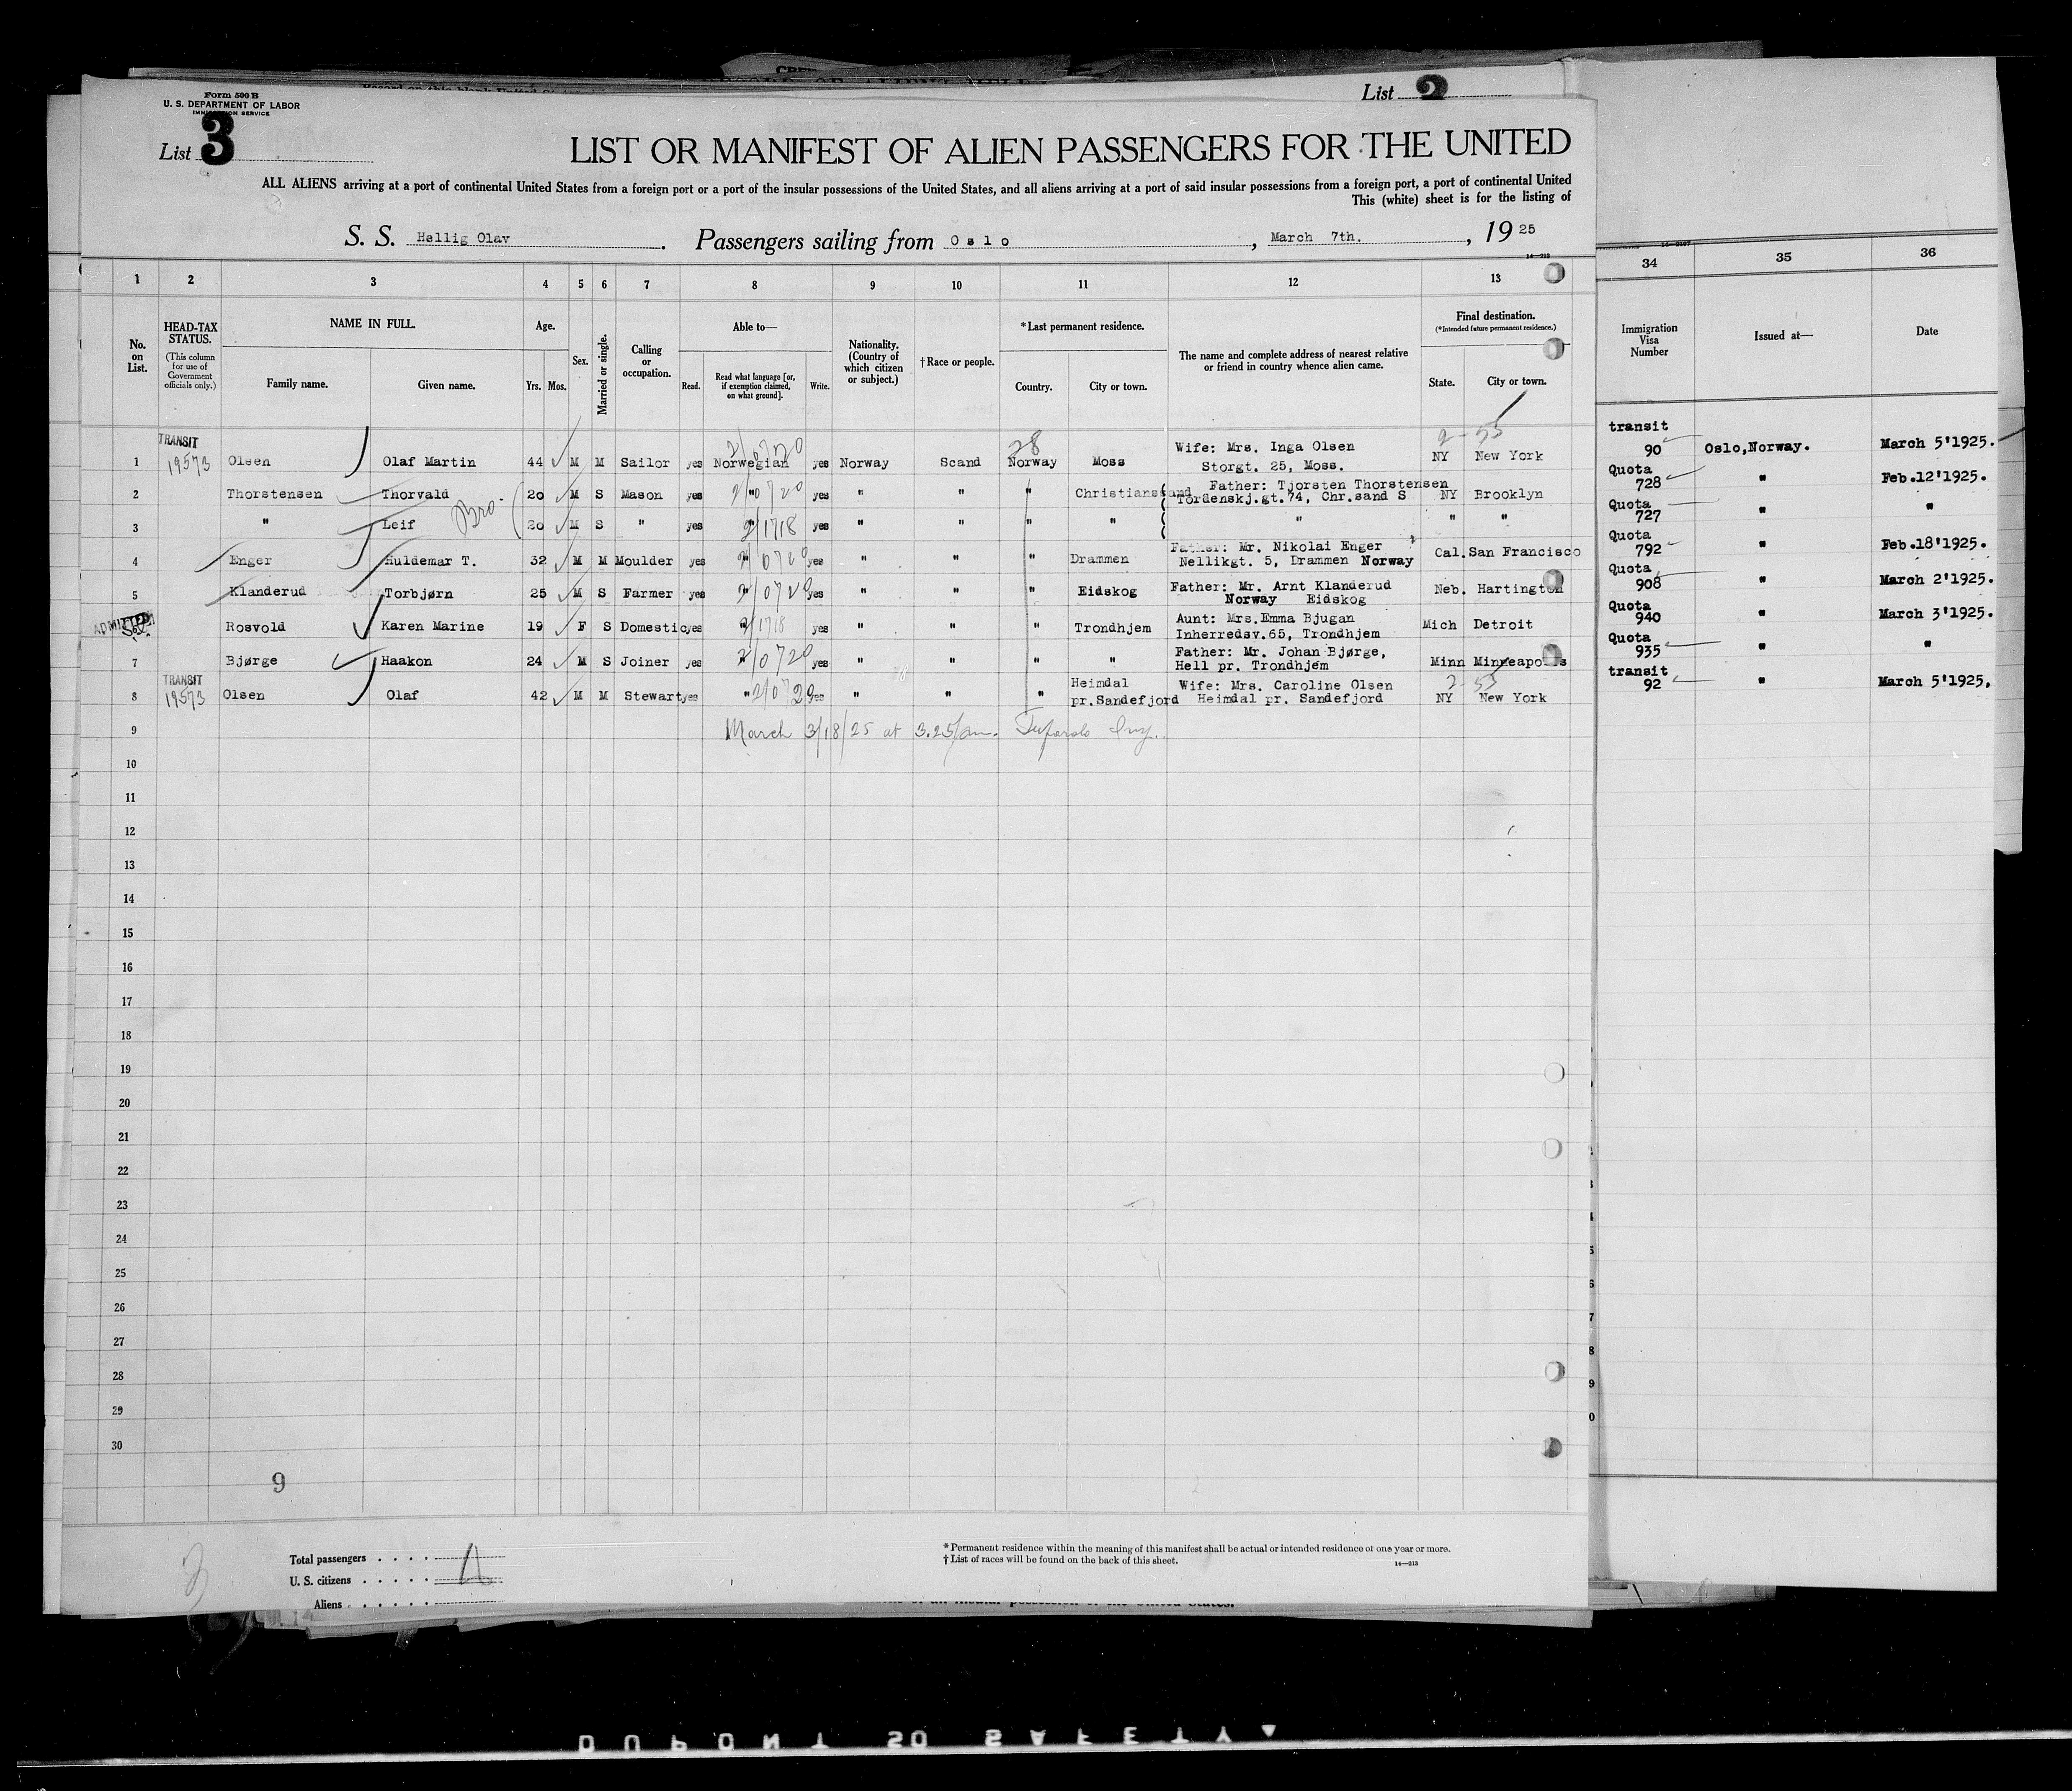 Form 500 B
U. S. DEPARTMENT OF LABOR
IMMIGRATION SERVICE
List 3
List 2
LIST OR MANIFEST OF ALIEN PASSENGERS FOR THE UNITED
ALL ALIENS arriving at a port of continental United States from a foreign port or a port of the insular possessions of the United States, and all aliens arriving at a port of said insular possessions from a foreign port, a port of continental United
This (white) sheet is for the listing of
S. S. Hellig Olav. Passengers sailing from Oslo, March 7th., 1925
14—213
1 2 3 4 5 6 7 8 9 10 11 12 13 34 35 36
No. on List.
HEAD-TAX STATUS.
(This column for use of Government officials only.)
NAME IN FULL.
Family name. Given name.
Age.
Yrs. Mos.
Sex.
Married or single.
Calling or occupation.
Able to—
Read. Read what language [or, if exemption claimed, on what ground]. Write.
Nationality. (Country of which citizen or subject.)
†Race or people.
*Last permanent residence.
Country. City or town.
The name and complete address of nearest relative or friend in country whence alien came.
Final destination.
(*Intended future permanent residence.)
State. City or town.
Immigration Visa Number
Issued at—
Date
1 TRANSIT 19573 Olsen Olaf Martin 44 M M Sailor yes Norwegian 2/0720 yes Norway Scand 28 Norway Moss Wife: Mrs. Inga Olsen Storgt. 25, Moss. 2-55 NY New York transit 90 Oslo,Norway. March 5'1925.
2 Thorstensen Thorvald Bro 20 M S Mason yes " 2/0720 yes " " " Christianssand Father: Tjorsten Thorstensen Tordenskj.gt.74, Chr.sand S NY Brooklyn Quota 728 " Feb.12'1925.
3 " Leif 20 M S " yes " 2/1718 yes " " " " " " " Quota 727 " "
4 Enger Huldemar T. 32 M M Moulder yes " 2/0720 yes " " " Drammen Father: Mr. Nikolai Enger Nellikgt. 5, Drammen Norway Cal. San Francisco Quota 792 " Feb.18'1925.
5 Klanderud Torbjørn 25 M S Farmer yes " 2/0720 yes " " " Eidskog Father: Mr. Arnt Klanderud Norway Eidskog Neb. Hartington Quota 908 " March 2'1925.
ADMITTED Rosvold Karen Marine 19 F S Domestic yes " 2/1718 yes " " " Trondhjem Aunt: Mrs.Emma Bjugan Inherredsv.65, Trondhjem Mich Detroit Quota 940 " March 3'1925.
7 Bjørge Haakon 24 M S Joiner yes " 2/0720 yes " " " " Father: Mr. Johan Bjørge, Hell pr. Trondhjem Minn Minneapolis Quota 935 " "
8 TRANSIT 19573 Olsen Olaf 42 M M Stewart yes " 2/0720 yes " " " Heimdal pr.Sandefjord Wife: Mrs. Caroline Olsen Heimdal pr. Sandefjord 2-55 NY New York transit 92 " March 5'1925,
9 March 3/18/25 at 3.25/am.
10
11
12
13
14
15
16
17
18
19
20
21
22
23
24
25
26
27
28
29
30
9
Total passengers
U. S. citizens
Aliens
*Permanent residence within the meaning of this manifest shall be actual or intended residence of one year or more.
†List of races will be found on the back of this sheet.
14—213
DUPONT SO SAFETY